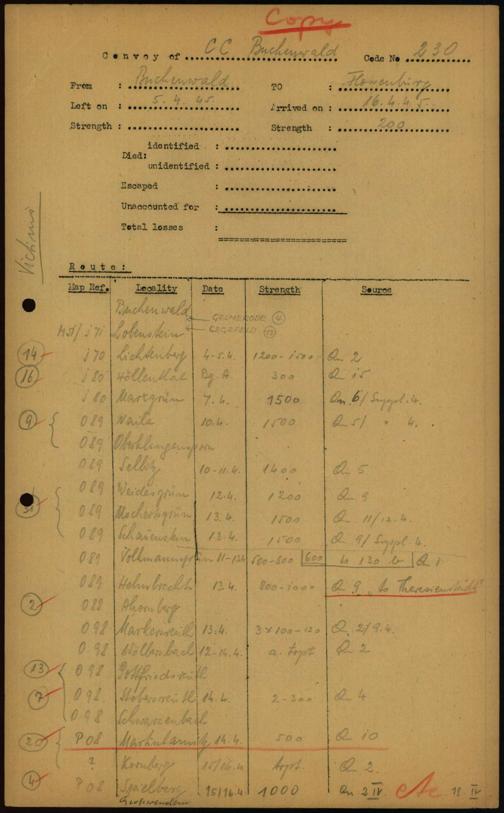 Copy
Convoy of CC Buchenwald Code No 230
From : Buchenwald TO : Flossenbürg
Left on : 5.4.45 Arrived on : 16.4.45
Strength : Strength : 200
identified :
Died:
unidentified :
Escaped :
Unaccounted for :
Total losses :
Victims
Route:
Map Ref. Locality Date Strength Source
Buchenwald
GELMERODE 4
M51/J71 Lobenstein LEGEFELD
14 J70 Lichtenberg 4-5.4. 1200-1500 Qn 2
16 J80 Höllenthal Bg. A 300 Qn 15
J80 Marxgrün 7.4. 1500 Qn 6/Suppl. 4.
9 O89 Naila 10.4. 1500 Qn 5/ " 4.
O89 Oberklingensporn
O89 Selbitz 10-11.4. 1400 Qn 5
O89 Weidesgrün 12.4. 1200 Qn 9
O89 Mochersgrün 13.4. 1500 Qn 11/12.4.
O89 Schauenstein 13.4. 1500 Qn 9/Suppl. 4.
O89 Vollmannsgrün 11-12.4. 500-800 600 to 130 b Qn 1
O89 Helmbrechts 13.4. 800-1000 Qn 9 "to Theresienstadt"
2 O88 Ahornberg
O98 Markersreuth 13.4. 3 x 100-120 Qn 2/9.4.
O98 Wöllenbach 12-14.4. a. Trpt. Qn 2
13 O98 Gottfriedsreuth
7 O98 Stobersreuth 14.4. 2-300 Qn 4
O98 Schwarzenbach
20 P08 Martinlamitz 14.4. 500 Qn 10
? Kornberg 15/16.4. Trpt. Qn 2.
4 P08 Spielberg 15/16.4 1000 Qn 2 IV 18 IV